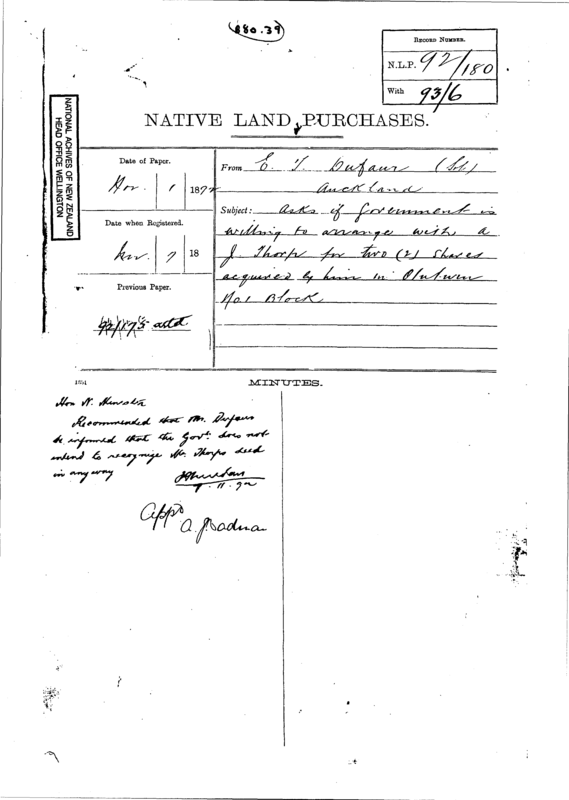 880.39
RECORD NUMBER.
N.L.P. 92/180
With 93/6
NATIONAL ACHIVES OF NEW ZEALAND
HEAD OFFICE WELLINGTON
NATIVE LAND PURCHASES.
Date of Paper.
Nov. 1 1892
Date when Registered.
Nov. 7 18
Previous Paper.
92/175 attd
From E. T. Dufaur (Sol)
Auckland
Subject: Asks if Government is
willing to arrange with a
J. Thorp for two (2) Shares
acquired by him in
No 1 Block
1251
MINUTES.
Hon N. Minister
Recommended that Mr. Dufaur
be informed that the Govt. does not
intend to recognize Mr. Thorps deed
in any way
7.11.92
Appd
A. J. Cadman